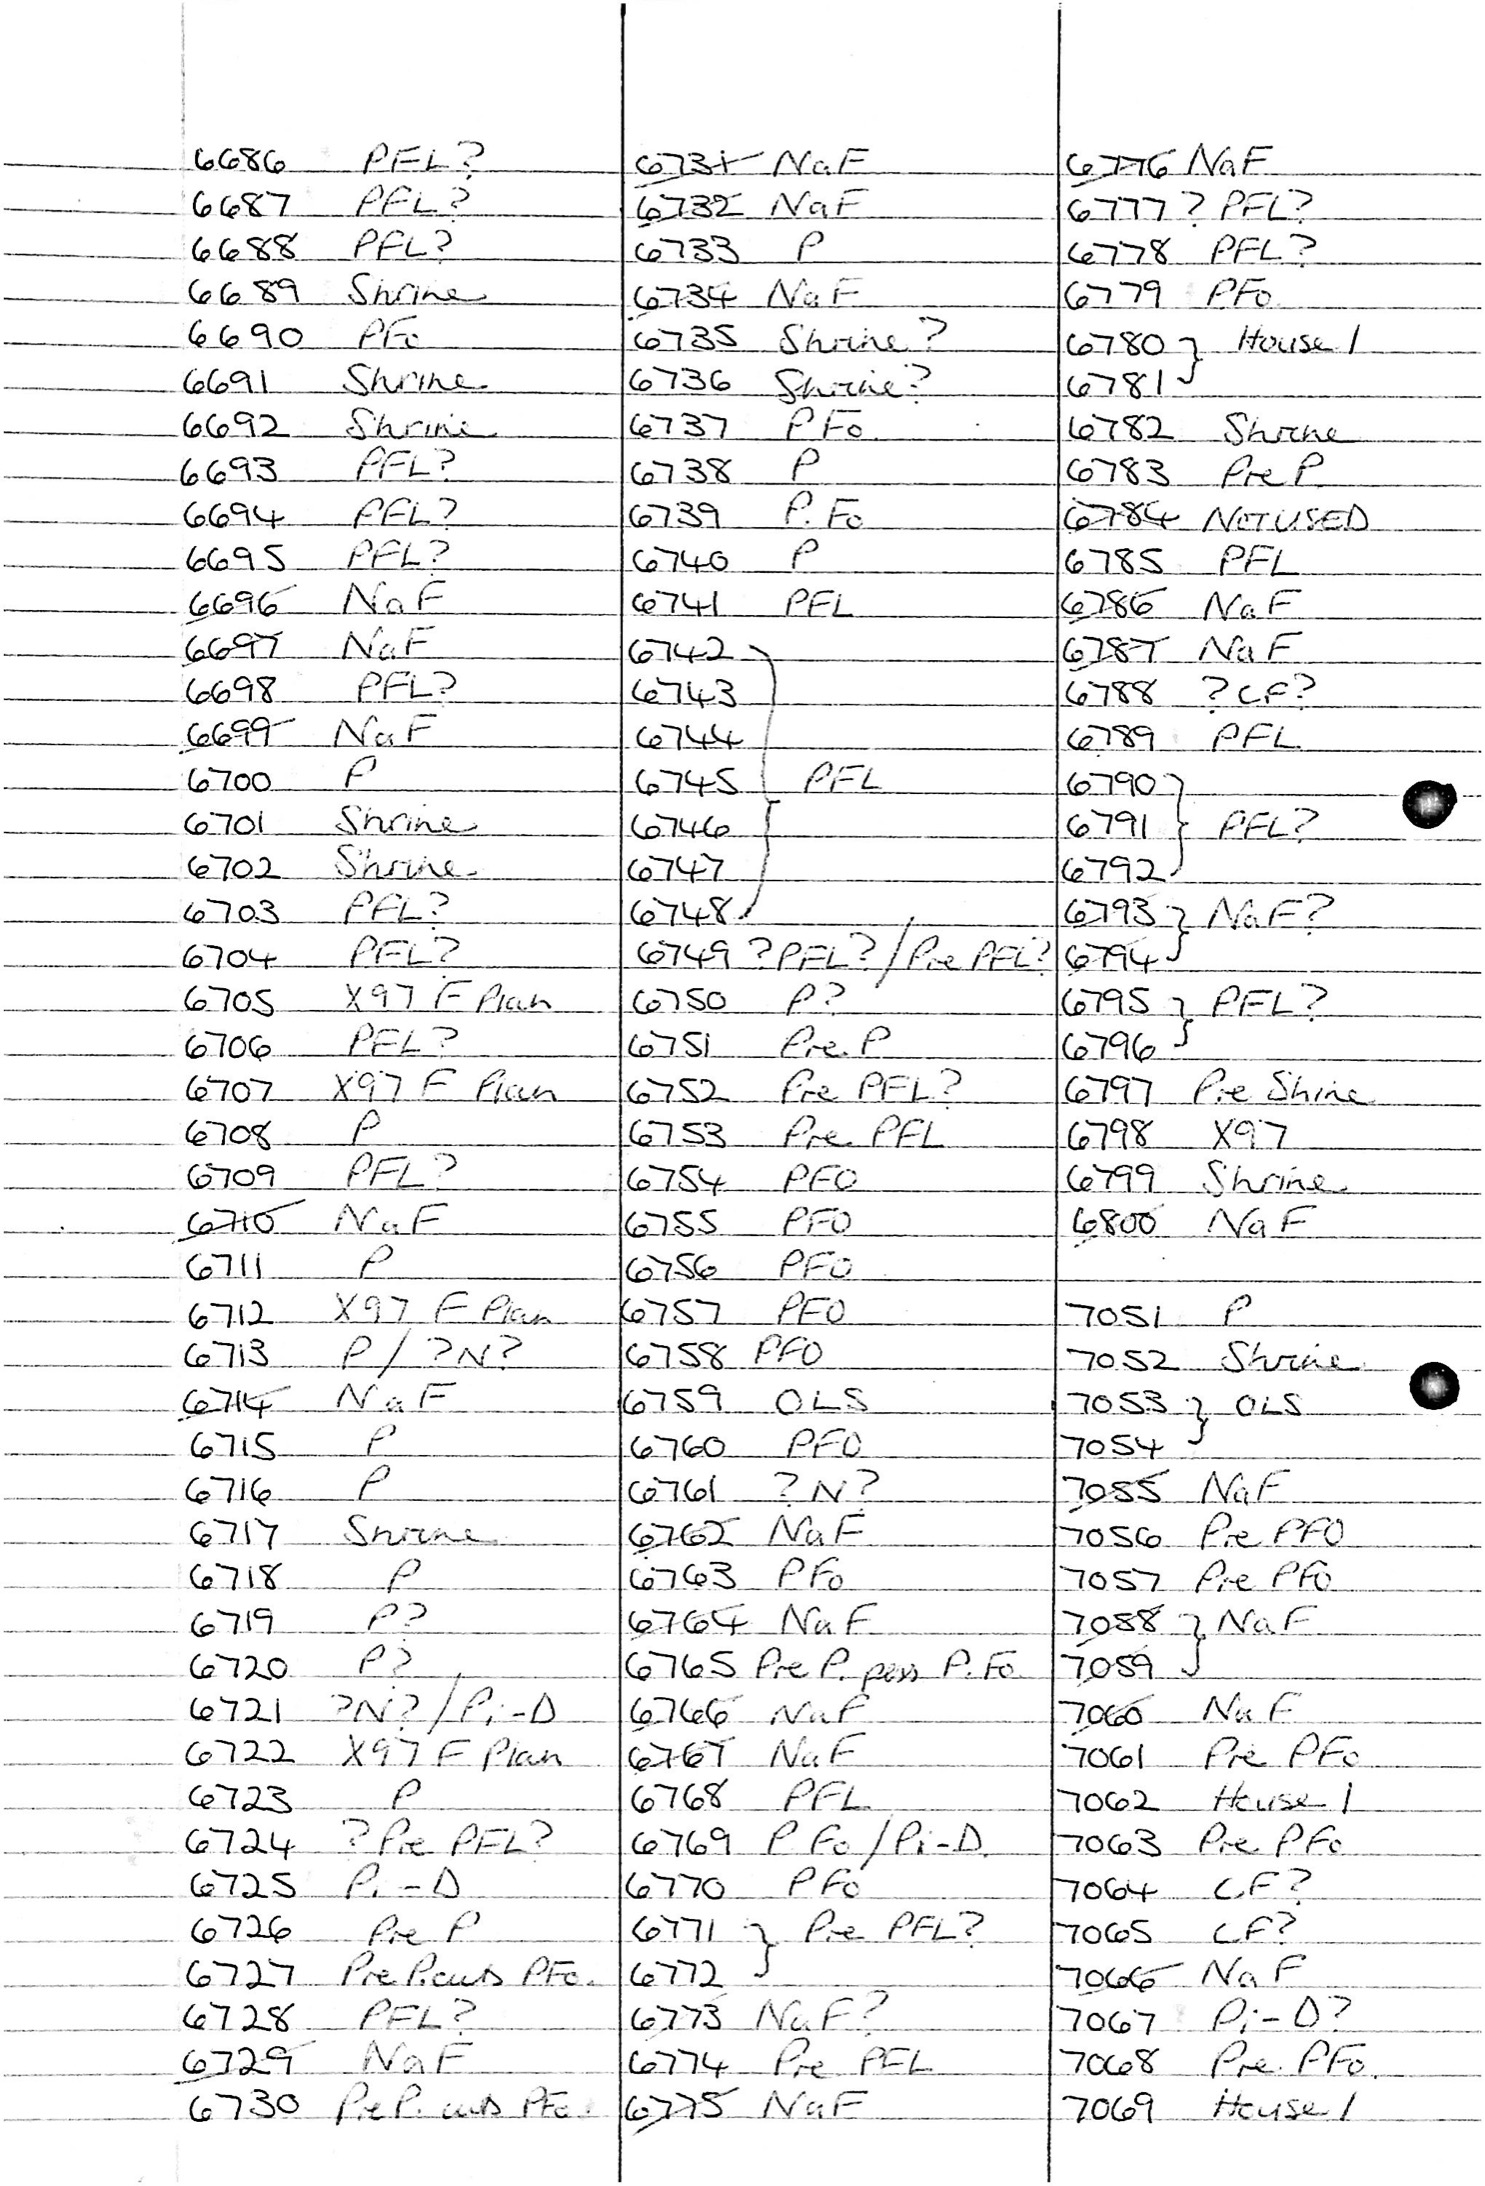 6686 PFL?
6687 PFL?
6688 PFL?
6689 Shrine
6690 PFo
6691 Shrine
6692 Shrine
6693 PFL?
6694 PFL?
6695 PFL?
6696 NaF
6697 NaF
6698 PFL?
6699 NaF
6700 P
6701 Shrine
6702 Shrine
6703 PFL?
6704 PFL?
6705 X97 F Plan
6706 PFL?
6707 X97 F Plan
6708 P
6709 PFL?
6710 NaF
6711 P
6712 X97 F Plan
6713 P / ?N?
6714 NaF
6715 P
6716 P
6717 Shrine
6718 P
6719 P?
6720 P?
6721 ?N? / Pi-D
6722 X97 F Plan
6723 P
6724 ? Pre PFL?
6725 Pi-D
6726 Pre P
6727 Pre P. cuts PFo.
6728 PFL?
6729 NaF
6730 Pre P. cuts PFo.
6731 NaF
6732 NaF
6733 P
6734 NaF
6735 Shrine?
6736 Shrine?
6737 PFo
6738 P
6739 P.Fo
6740 P
6741 PFL
6742
6743
6744
6745 } PFL
6746
6747
6748
6749 ?PFL? / Pre PFL?
6750 P?
6751 Pre.P
6752 Pre PFL?
6753 Pre PFL
6754 PFO
6755 PFO
6756 PFO
6757 PFO
6758 PFO
6759 OLS
6760 PFO
6761 ?N?
6762 NaF
6763 PFo
6764 NaF
6765 Pre P. poss P.Fo
6766 NaF
6767 NaF
6768 PFL
6769 PFo / Pi-D
6770 PFo
6771 } Pre PFL?
6772
6773 NaF?
6774 Pre PFL
6775 NaF
6776 NaF
6777 ? PFL?
6778 PFL?
6779 PFo
6780 } House 1
6781
6782 Shrine
6783 Pre P.
6784 NOT USED
6785 PFL
6786 NaF
6787 NaF
6788 ?CF?
6789 PFL
6790
6791 } PFL?
6792
6793 } NaF?
6794
6795 } PFL?
6796
6797 Pre Shine
6798 X97
6799 Shrine
6800 NaF
7051 P
7052 Shrine
7053 } OLS
7054
7055 NaF
7056 Pre PFO
7057 Pre PFo
7058 } NaF
7059
7060 NaF
7061 Pre PFo
7062 House 1
7063 Pre PFo
7064 CF?
7065 CF?
7066 NaF
7067 Pi-D?
7068 Pre. PFo.
7069 House 1